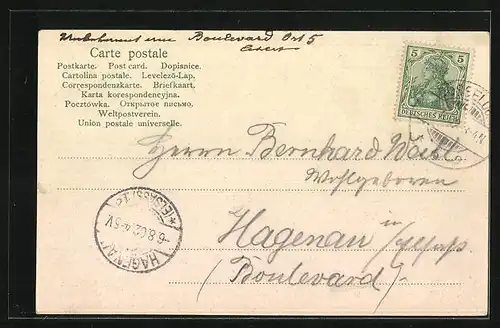 Boulevard Ort 5
Carte postale
Postkarte. Post card. Dopisnice.
Cartolina postale. Levelező-Lap.
Correspondenzkarte. Briefkaart.
Karta korespondencyjna.
Pocztówka. Открытое письмо.
Weltpostverein.
Union postale universelle.
5 5
DEUTSCHES REICH
Herrn Bernhard
Wohlgeboren
Hagenau in
(Boulevard)
HAGENAU